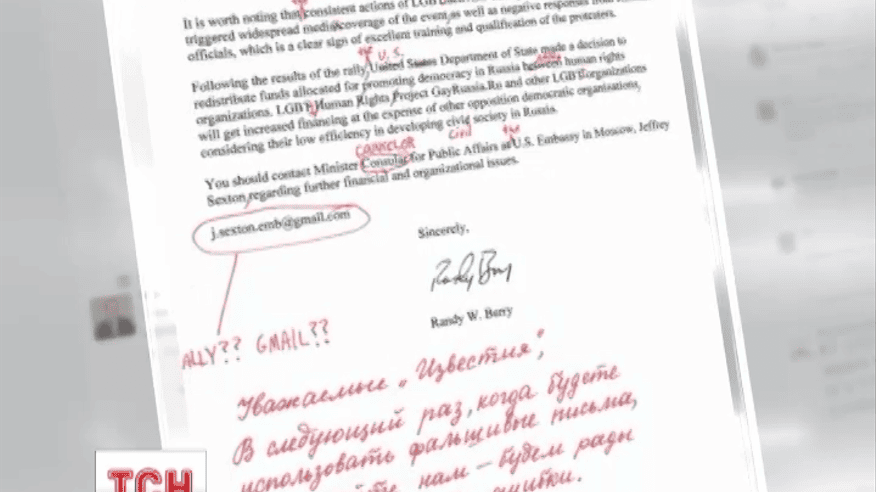 It is worth noting that consistent actions of LGB
triggered widespread media coverage of the event as well as negative responses from
officials, which is a clear sign of excellent training and qualification of the protesters.
the U.S.
Following the results of the rally, United States Department of State made a decision to
redistribute funds allocated for promoting democracy in Russia between human rights
organizations. LGBT Human Rights Project GayRussia.Ru and other LGBT organizations
will get increased financing at the expense of other opposition democratic organisations,
considering their low efficiency in developing civic society in Russia.
COUNCELOR civil the
You should contact Minister Consular for Public Affairs at U.S. Embassy in Moscow, Jeffrey
Sexton regarding further financial and organizational issues.
j.sexton.emb@gmail.com
Sincerely,
Randy W. Berry
ALLY?? GMAIL??
Уважаемые „Известия",
В следующий раз, когда будете
использовать фальшивые письма,
нам – будем рады
ошибки.
ТСН